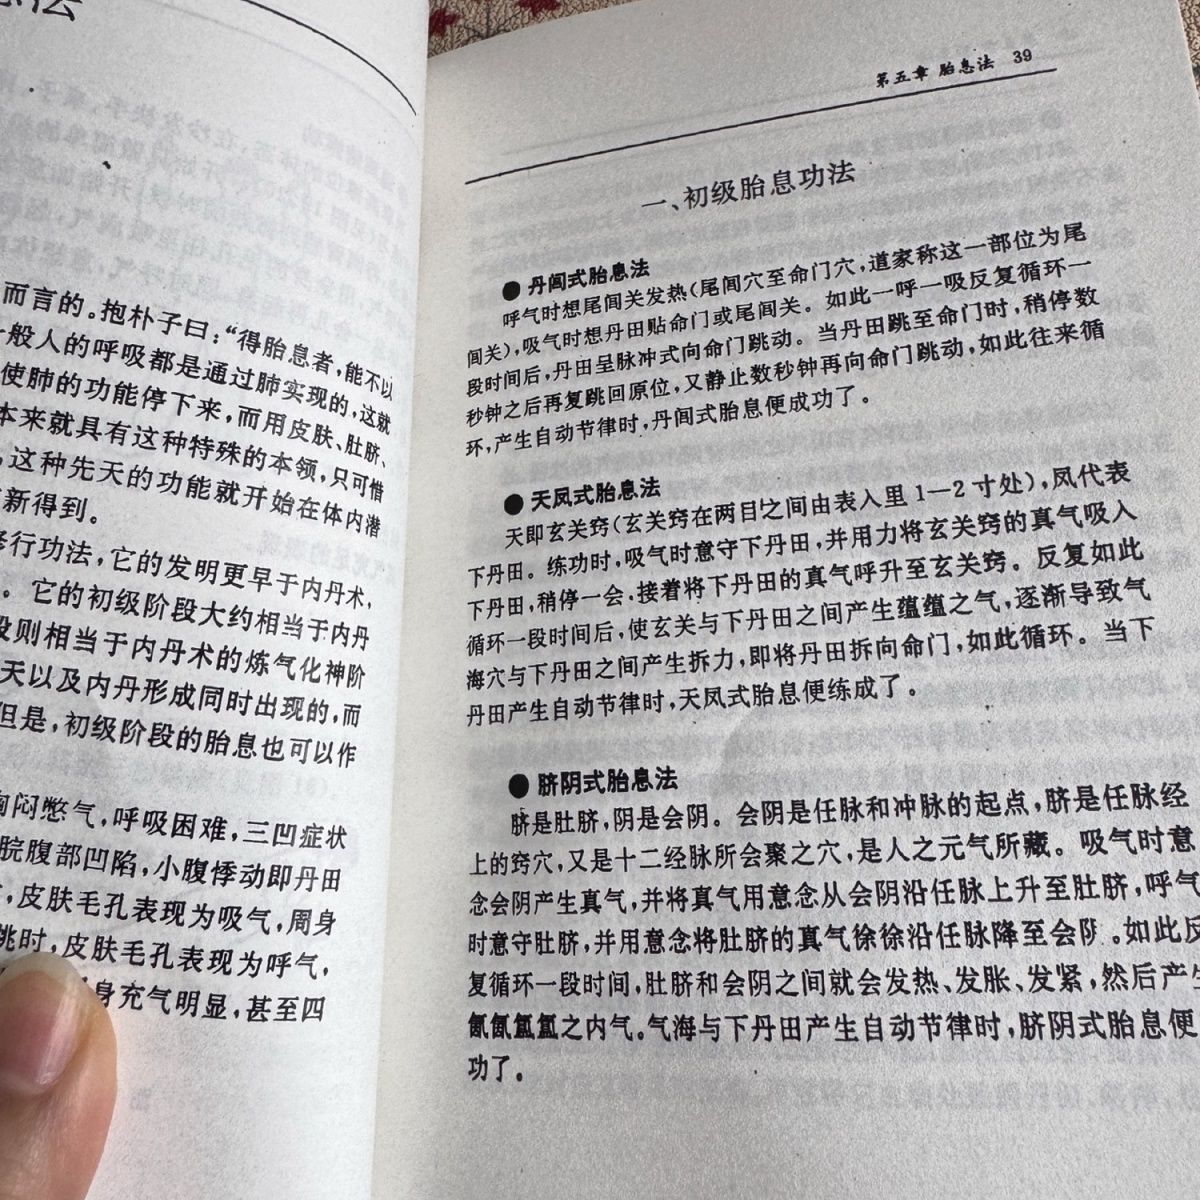 息法
而言的。抱朴子曰：“得胎息者，能不以
般人的呼吸都是通过肺实现的，这就
使肺的功能停下来，而用皮肤、肚脐、
本来就具有这种特殊的本领，只可惜
，这种先天的功能就开始在体内潜
新得到。
修行功法，它的发明更早于内丹术，
。它的初级阶段大约相当于内丹
段则相当于内丹术的炼气化神阶
天以及内丹形成同时出现的，而
但是，初级阶段的胎息也可以作
胸闷憋气，呼吸困难，三凹症状
脘腹部凹陷，小腹悸动即丹田
，皮肤毛孔表现为吸气，周身
跳时，皮肤毛孔表现为呼气，
身充气明显，甚至四
第五章 胎息法 39
一、初级胎息功法
●丹闾式胎息法
呼气时想尾闾关发热（尾闾穴至命门穴，道家称这一部位为尾
闾关），吸气时想丹田贴命门或尾闾关。如此一呼一吸反复循环一
段时间后，丹田呈脉冲式向命门跳动。当丹田跳至命门时，稍停数
秒钟之后再复跳回原位，又静止数秒钟再向命门跳动，如此往来循
环，产生自动节律时，丹闾式胎息便成功了。
●天凤式胎息法
天即玄关窍（玄关窍在两目之间由表入里1—2寸处），凤代表
下丹田。练功时，吸气时意守下丹田，并用力将玄关窍的真气吸入
下丹田，稍停一会·接着将下丹田的真气呼升至玄关窍。反复如此
循环一段时间后，使玄关与下丹田之间产生蕴蕴之气，逐渐导致气
海穴与下丹田之间产生拆力，即将丹田拆向命门，如此循环。当下
丹田产生自动节律时，天凤式胎息便练成了。
●脐阴式胎息法
脐是肚脐，阴是会阴。会阴是任脉和冲脉的起点，脐是任脉经
上的窍穴，又是十二经脉所会聚之穴，是人之元气所藏。吸气时意
念会阴产生真气，并将真气用意念从会阴沿任脉上升至肚脐，呼气
时意守肚脐，并用意念将肚脐的真气徐徐沿任脉降至会阴。如此反
复循环一段时间，肚脐和会阴之间就会发热、发胀、发紧，然后产生
氤氤氲氲之内气。气海与下丹田产生自动节律时，脐阴式胎息便
功了。